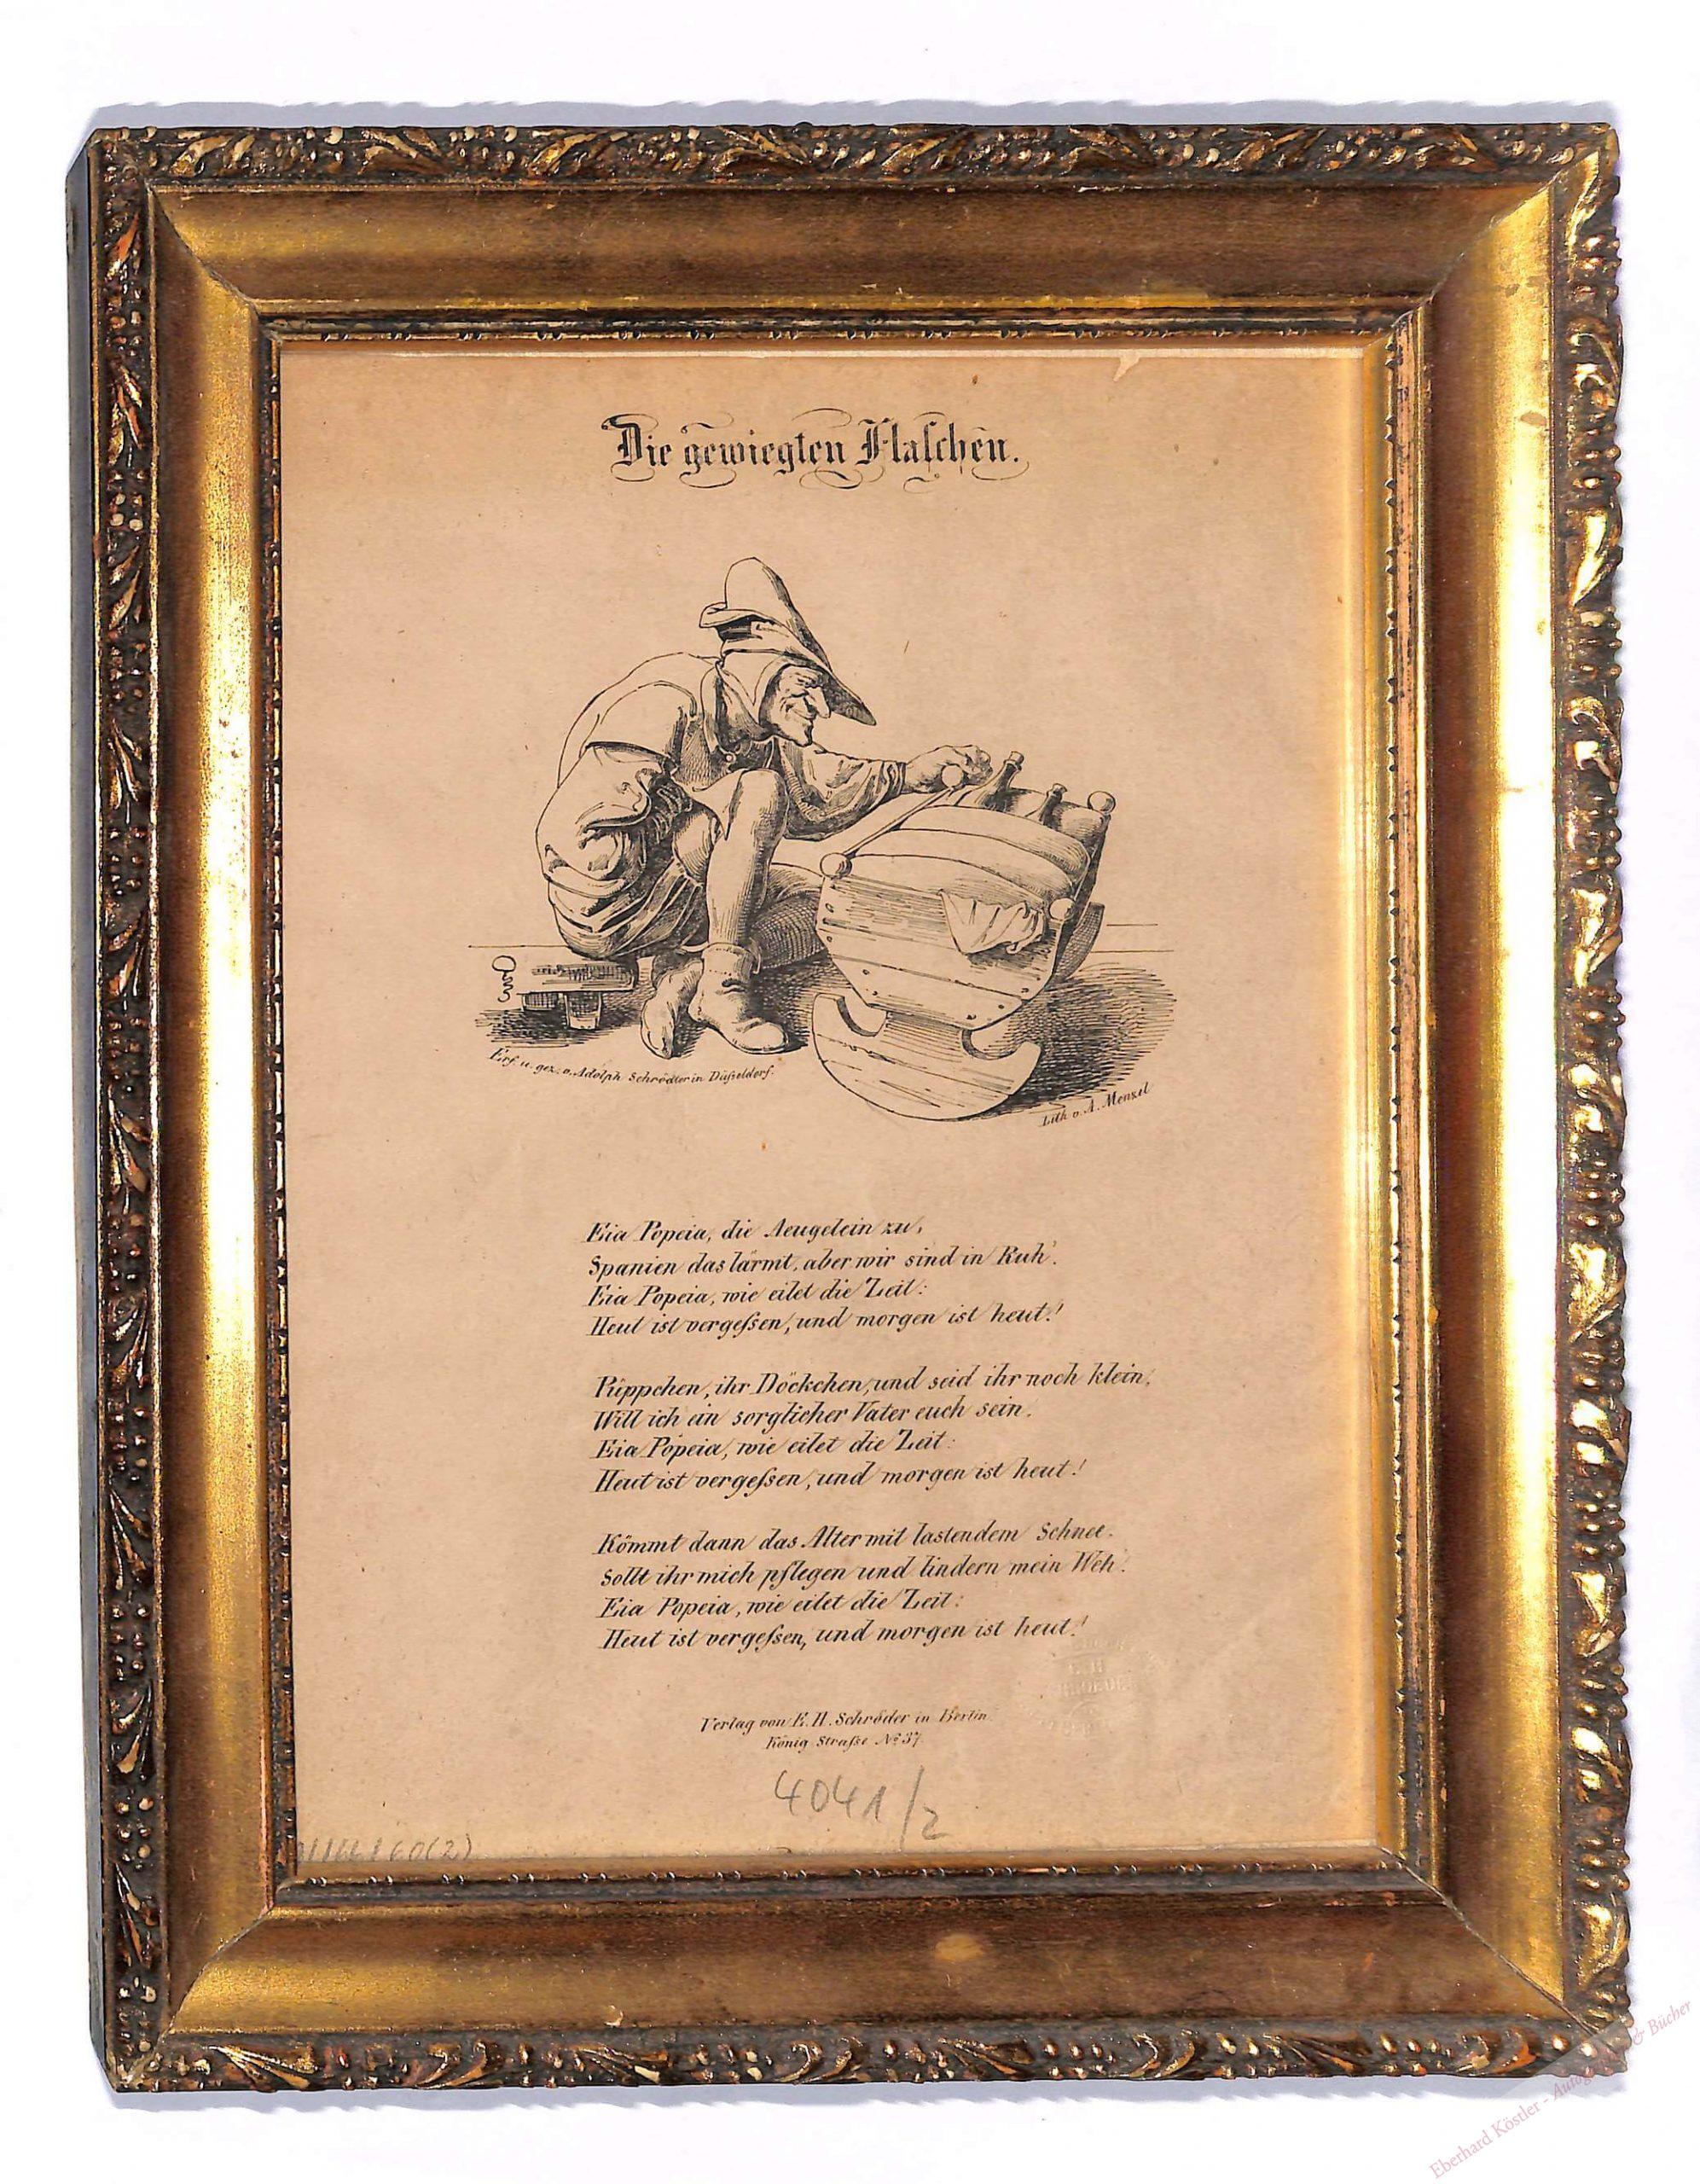 Die gewiegten Flaſchen.
Erf. u. gez. v. Adolph Schrödter in Düſseldorf.
Lith v. A. Menzel
Eia Popeia, die Aeugelein zu,
Spanien das lärmt, aber wir sind in Ruh'.
Eia Popeia, wie eilet die Zeit:
Heut ist vergeſsen, und morgen ist heut!
Püppchen, ihr Döckchen, und seid ihr noch klein,
Will ich ein sorglicher Vater euch sein.
Eia Popeia, wie eilet die Zeit:
Heut ist vergeſsen, und morgen ist heut!
Kömmt dann das Alter mit lastendem Schnee,
Sollt ihr mich pflegen und lindern mein Weh'.
Eia Popeia, wie eilet die Zeit:
Heut ist vergeſsen, und morgen ist heut!
Verlag von E. H. Schröder in Berlin.
König Straſse No 37.
4041/2
Eberhard Köstler - & Bücher